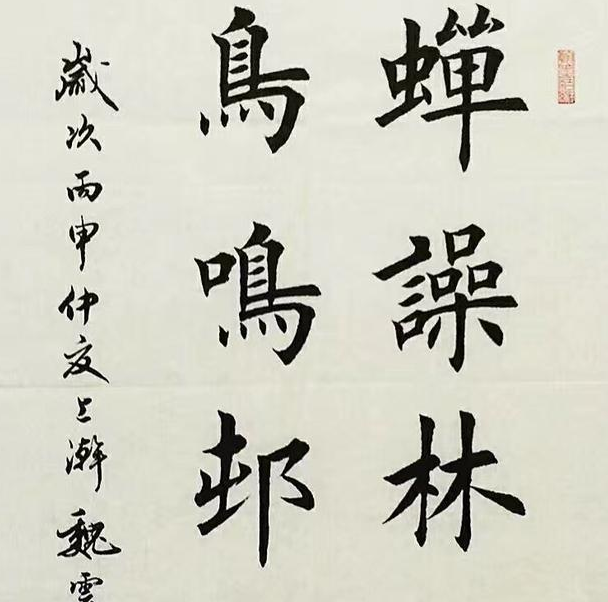 蟬譟林
鳥鳴邨
歲次丙申仲夏上澣魏雲